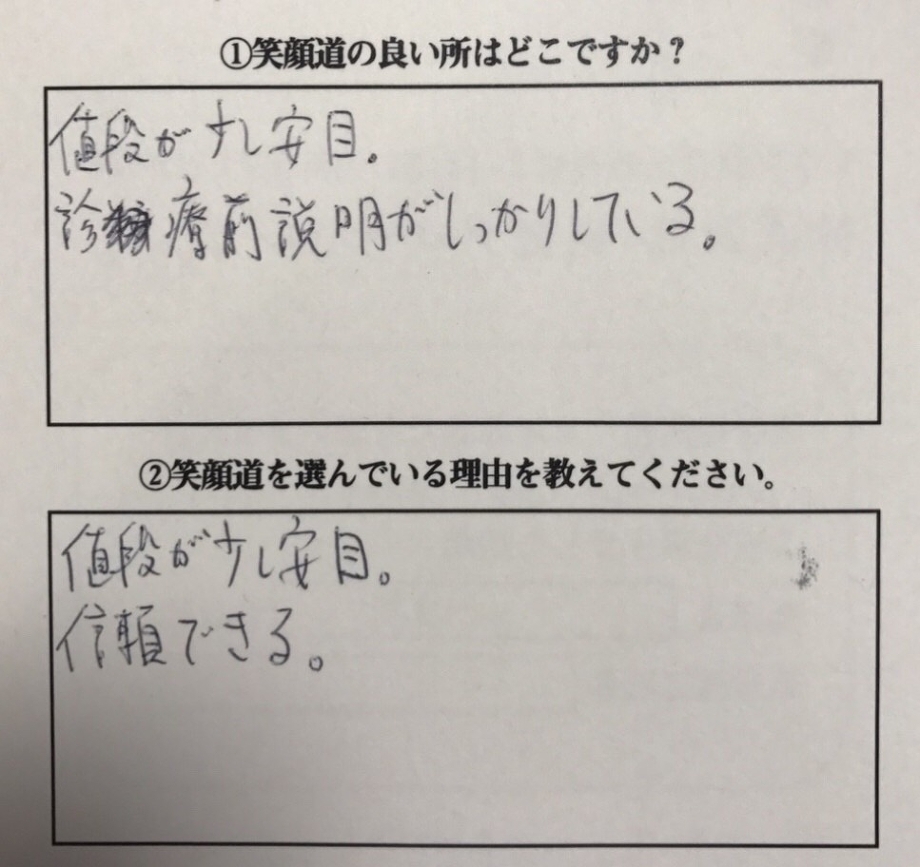 ①笑顔道の良い所はどこですか？
値段が少し安目。
診療前説明がしっかりしている。
②笑顔道を選んでいる理由を教えてください。
値段が少し安目。
信頼できる。